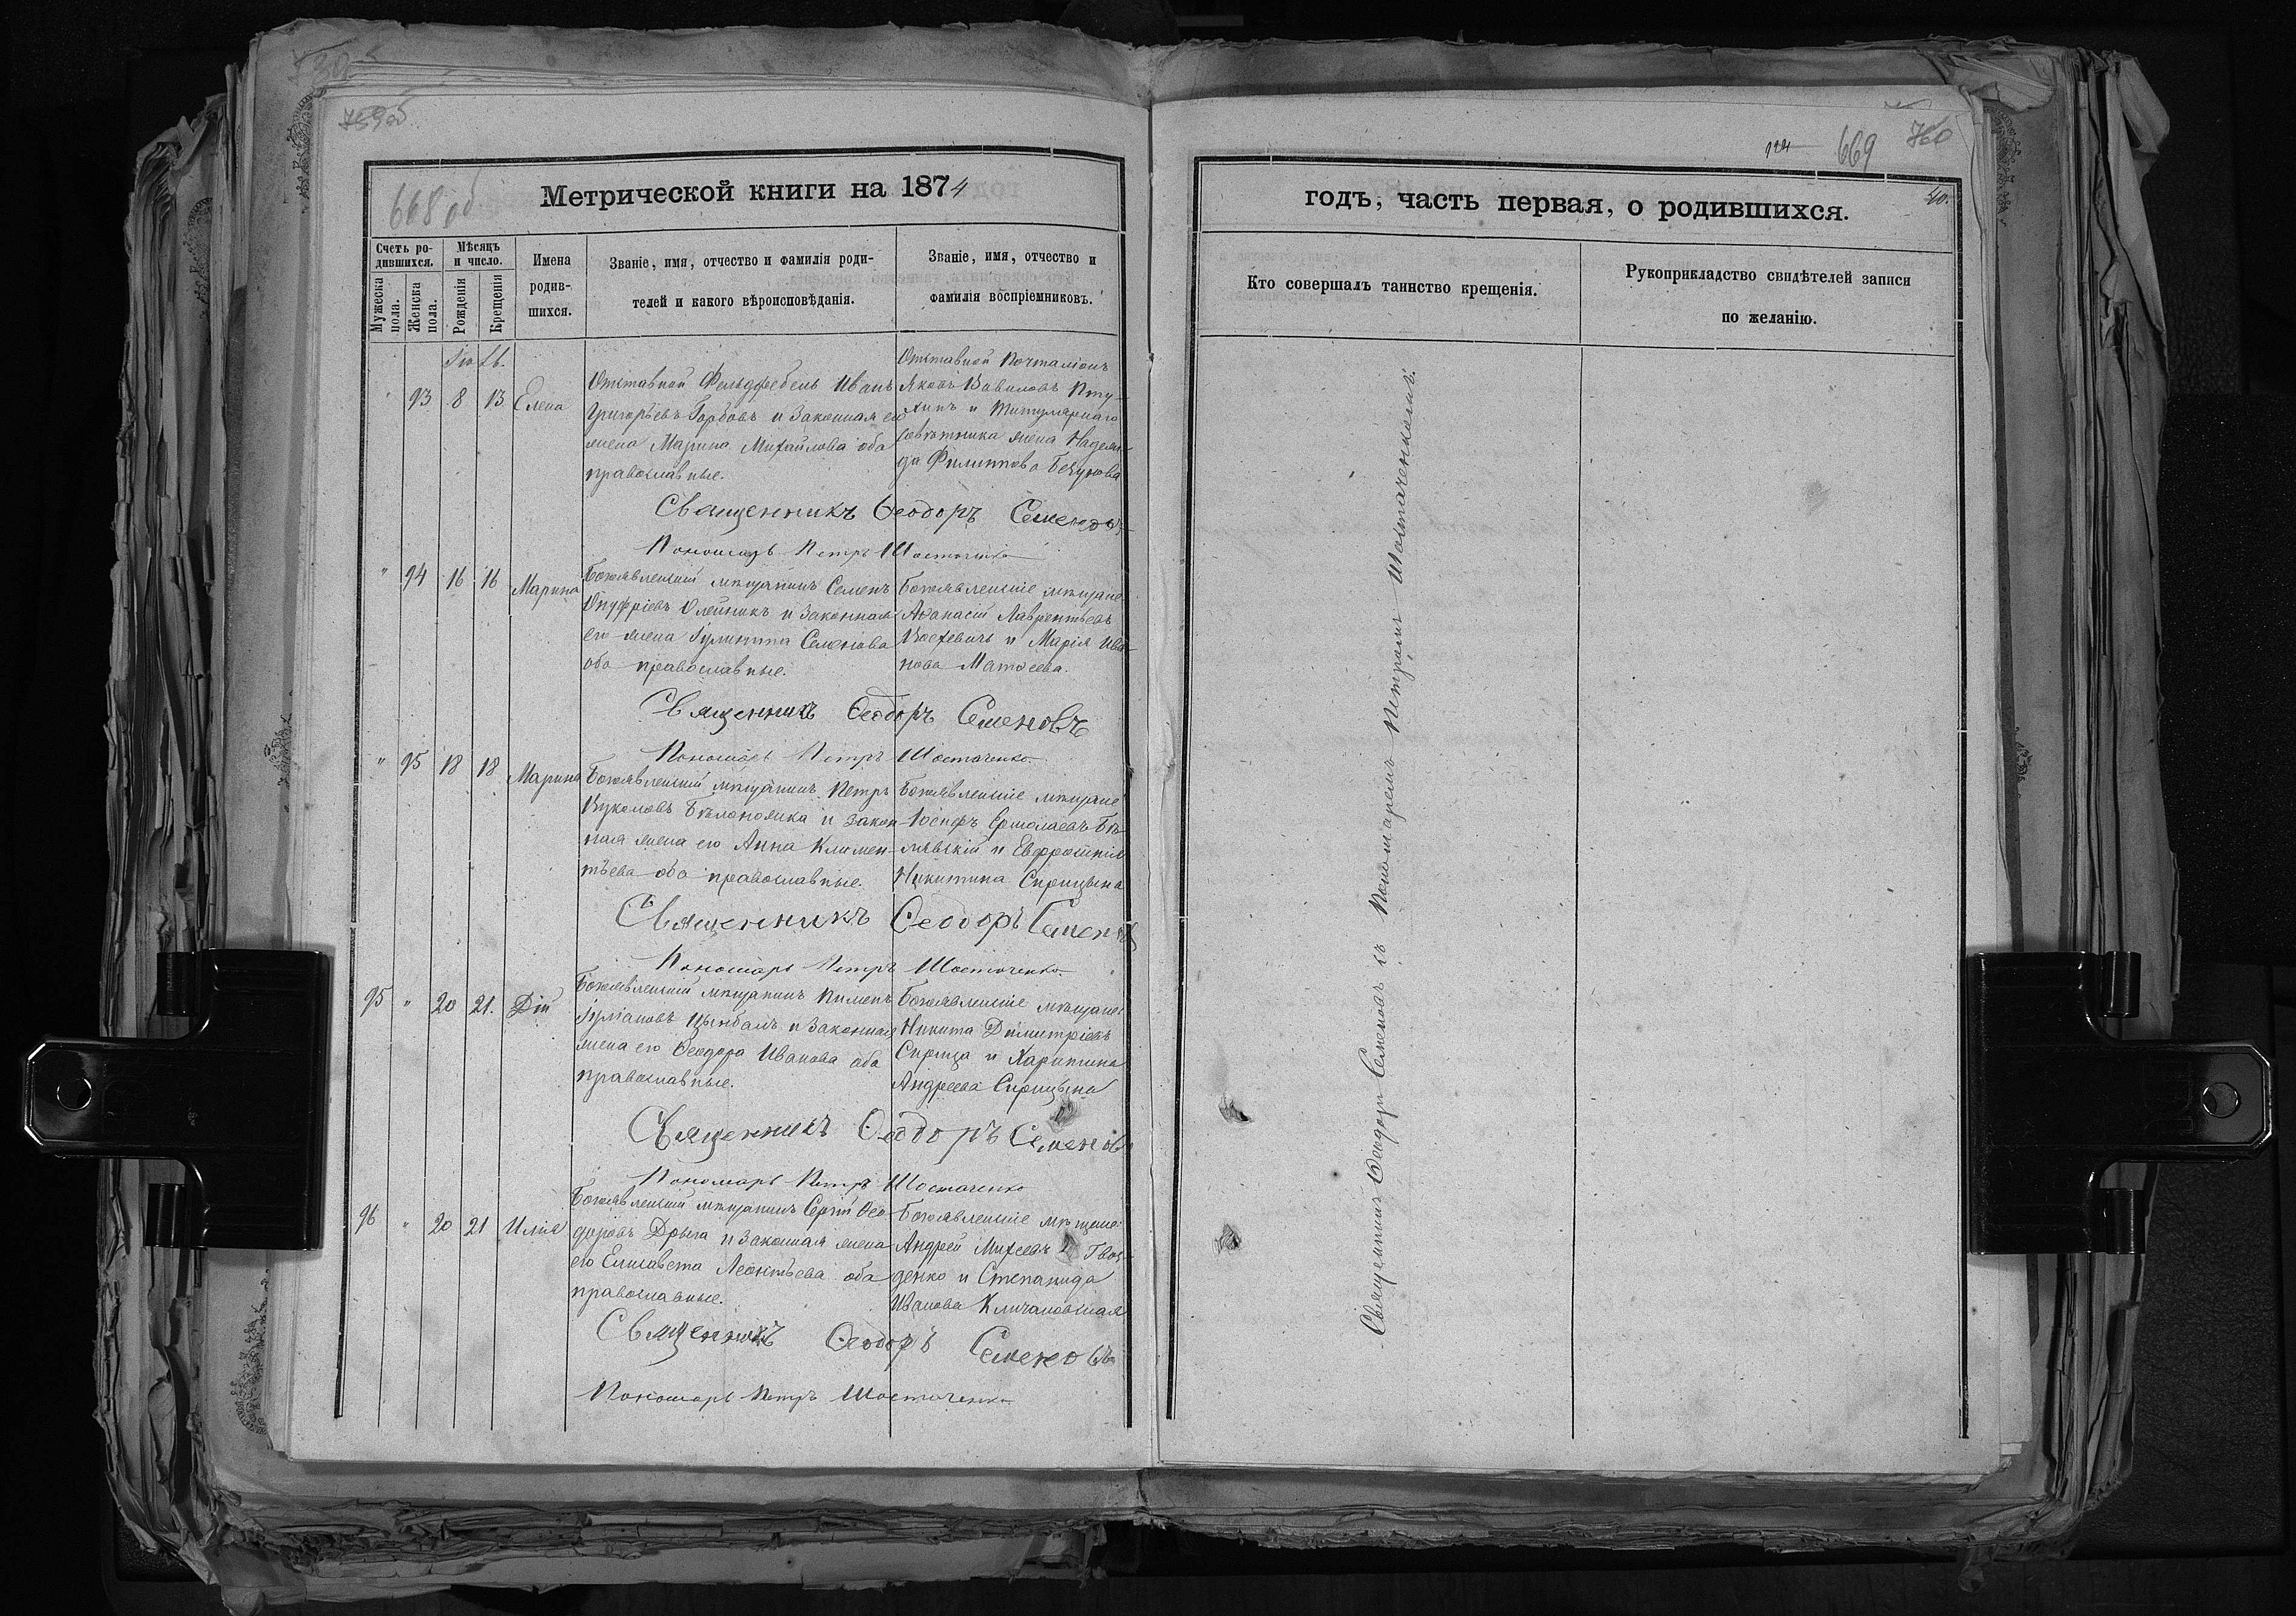 759об
668об
Метрической книги на 1874
Счетъ ро-
дившихся.
Мѣсяцъ
и число.
Мужеска
пола.
Женска
пола.
Рожденія
Крещенія
Имена
родив-
шихся.
Званіе, имя, отчество и фамилія роди-
телей и какого вѣроисповѣданія.
Званіе, имя, отчество и
фамилія воспріемниковъ.
93 8 13 Елена
Отставной Фельдфебель Иванъ
Григорьевъ Горбовъ и Законная его
жена Марина Михайлова оба
православные.
Отставной Почталіонъ
Яковъ Вавиловъ Пту-
хинъ и Титулярнаго
Совѣтника жена Надеж-
да Филиппова
Священникъ Ѳеодоръ Семеновъ
Пономарь Петръ Шостаченко
" 94 16 16 Марина
Богоявленскій мѣщанинъ Семенъ
Онуфріевъ Олейникъ и Законная
его жена Іулитта Семенова
оба православные.
Богоявленскіе мѣщане
Аѳанасій Лаврентьевъ
и Марія Ива-
нова Матѳеева.
Священникъ Ѳеодоръ Семеновъ
Пономарь Петръ Шостаченко
" 95 18 18 Марина
Богоявленскій мѣщанинъ Петръ
Вуколовъ Бѣлоножка и Закон-
ная жена его Анна Климен-
тьева оба православные.
Богоявленскіе мѣщане
Іосифъ Ермолаевъ Бѣ-
лявскій и Евфросинія
Никитина Сирицына
Священникъ Ѳеодоръ Семеновъ
Пономарь Петръ Шостаченко
95 " 20 21. Дій
Богоявленскій мѣщанинъ Пименъ
Іуліановъ Цымбалъ и Законная
жена его Ѳеодора Иванова оба
православные.
Богоявленскіе мѣщане
Никита Димитріевъ
Сирица и Харитина
Андреева Сирицына
Священникъ Ѳеодоръ Семеновъ
Пономарь Петръ Шостаченко
96 " 20 21 Илія
Богоявленскій мѣщанинъ Сергій Ѳео-
доровъ Дрыга и Законная жена
его Елисавета Леонтьева оба
православные.
Богоявленскіе мѣщане:
Андрей Михеевъ Гвоз-
денко и Степанида
Иванова Кличановская
Священникъ Ѳеодоръ Семеновъ
Пономарь Петръ Шостаченко
669 760
40.
годъ, часть первая, о родившихся.
Кто совершалъ таинство крещенія.
Рукоприкладство свидѣтелей записи
по желанію.
Священникъ Ѳеодоръ Семеновъ съ Пономаремъ Петромъ Шостаченкомъ.